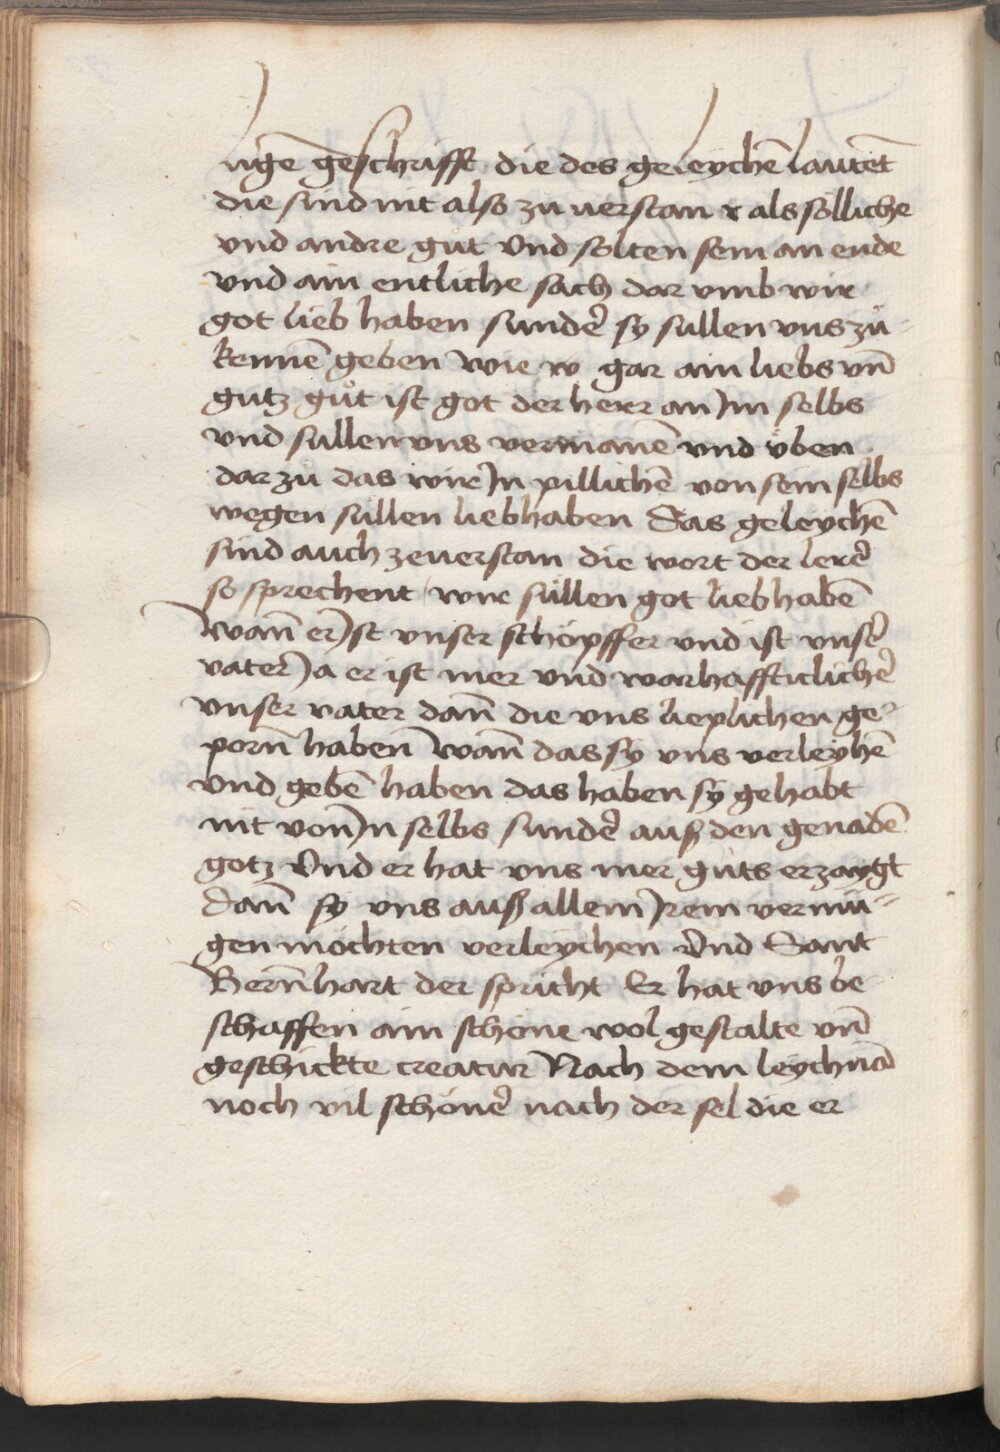 ligē geschrifft die des geleychē lautēt
die sind nit also zu uerstan r als sölliche
vnd andre gůt vnd solten sein an ende
vnd ain entliche sach dar vmb wir
got lieb haben sunder̄ sy sullen vns zů
kennē geben wie w gar ain liebs vn̄
gutz gůt ist got der herr an Jm selbs
vnd sullen vns vermanē vnd v̈ben
dar zů das wir Jn pillichē von sein selbs
wegen süllen liebhaben Das geleychē
sind auch zeuerstan die wort der lerer̄
so sprechent wir süllen got liebhabē
Wan̄ er Jst vnser schöpffer vnd ist vnser̄
vater Ja er ist mer vnd warhaffticlicher̄
vnser vater dan̄ die vns lieplichen ge-
porn̄ haben Wan̄ das sy vns verleyhē
vnd gebē haben das haben sy gehabt
nit von Jn selbs sunder̄ auß den genadē
gotz Vnd er hat vns mer guts erzaygt
dan̄ sy vns auß allem Jrem vermü-
gen möchten verleychen Vnd Sant
Bern̄hart der spricht Er hat vns be
schaffen ain schöne wol gestalte vn̄
geschickte creatur Nach dem leychnā
noch vil schöner̄ nach der sel die er